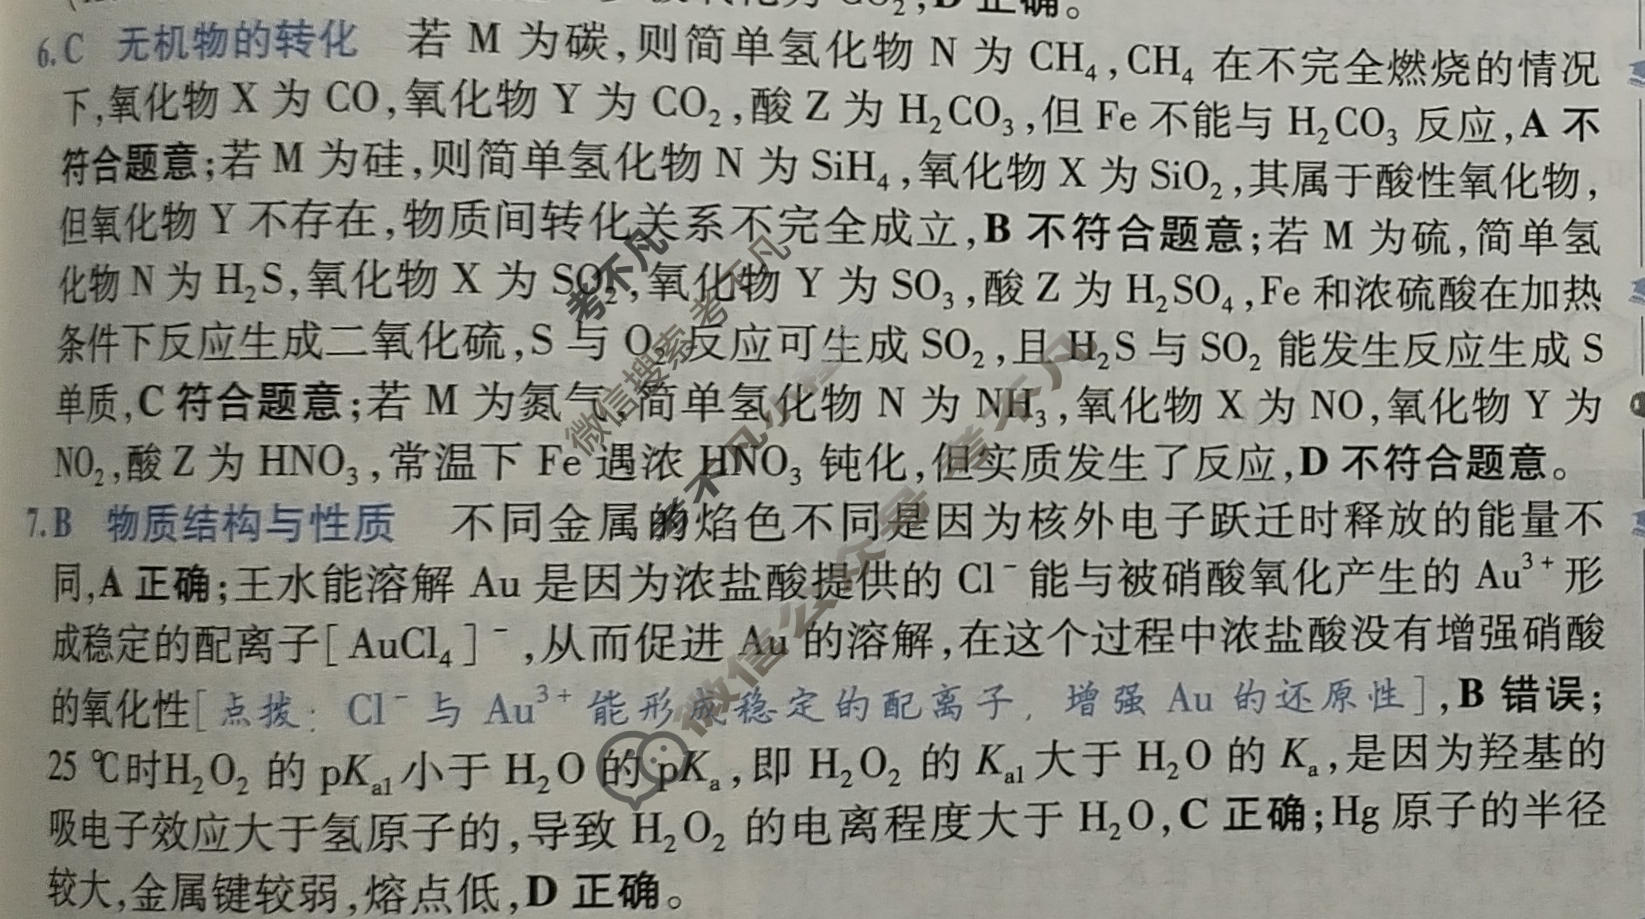 CO₂,D 正确。
6.C 无机物的转化 若 M 为碳,则简单氢化物 N 为 CH₄,CH₄ 在不完全燃烧的情况
下,氧化物 X 为 CO,氧化物 Y 为 CO₂,酸 Z 为 H₂CO₃,但 Fe 不能与 H₂CO₃ 反应,A 不
符合题意;若 M 为硅,则简单氢化物 N 为 SiH₄,氧化物 X 为 SiO₂,其属于酸性氧化物,
但氧化物 Y 不存在,物质间转化关系不完全成立,B 不符合题意;若 M 为硫,简单氢
化物 N 为 H₂S,氧化物 X 为 SO₂,氧化物 Y 为 SO₃,酸 Z 为 H₂SO₄,Fe 和浓硫酸在加热
条件下反应生成二氧化硫,S 与 O₂ 反应可生成 SO₂,且 H₂S 与 SO₂ 能发生反应生成 S
单质,C 符合题意;若 M 为氮气,简单氢化物 N 为 NH₃,氧化物 X 为 NO,氧化物 Y 为
NO₂,酸 Z 为 HNO₃,常温下 Fe 遇浓 HNO₃ 钝化,但实质发生了反应,D 不符合题意。
7.B 物质结构与性质 不同金属的焰色不同是因为核外电子跃迁时释放的能量不
同,A 正确;王水能溶解 Au 是因为浓盐酸提供的 Cl⁻能与被硝酸氧化产生的 Au³⁺形
成稳定的配离子[AuCl₄]⁻,从而促进 Au 的溶解,在这个过程中浓盐酸没有增强硝酸
的氧化性[点拨:Cl⁻与 Au³⁺能形成稳定的配离子,增强 Au 的还原性],B 错误;
25 ℃时H₂O₂ 的 pKₐ₁小于 H₂O 的 pKₐ,即 H₂O₂ 的 Kₐ₁大于 H₂O 的 Kₐ,是因为羟基的
吸电子效应大于氢原子的,导致 H₂O₂ 的电离程度大于 H₂O,C 正确;Hg 原子的半径
较大,金属键较弱,熔点低,D 正确。
考不凡
微信搜索考不凡
考不凡
考不凡
微信公众号